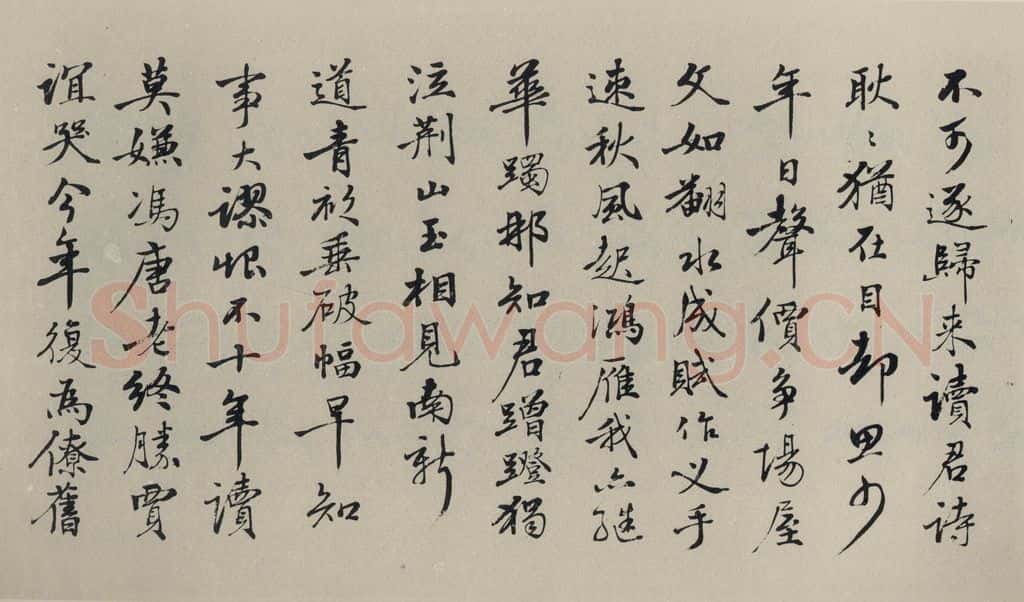 不可逐歸来讀君詩
耿〻猶在目却思少
年日聲價爭場屋
文如翻水成賦作叉手
速秋風起鴻雁我亦繼
華躅那知君蹭蹬獨
泣荆山玉相見南新
道青衫垂破幅早知
事大謬恨不十年讀
莫嫌馮唐老終勝賈
誼哭今年復為僚舊
Shufawang.CN